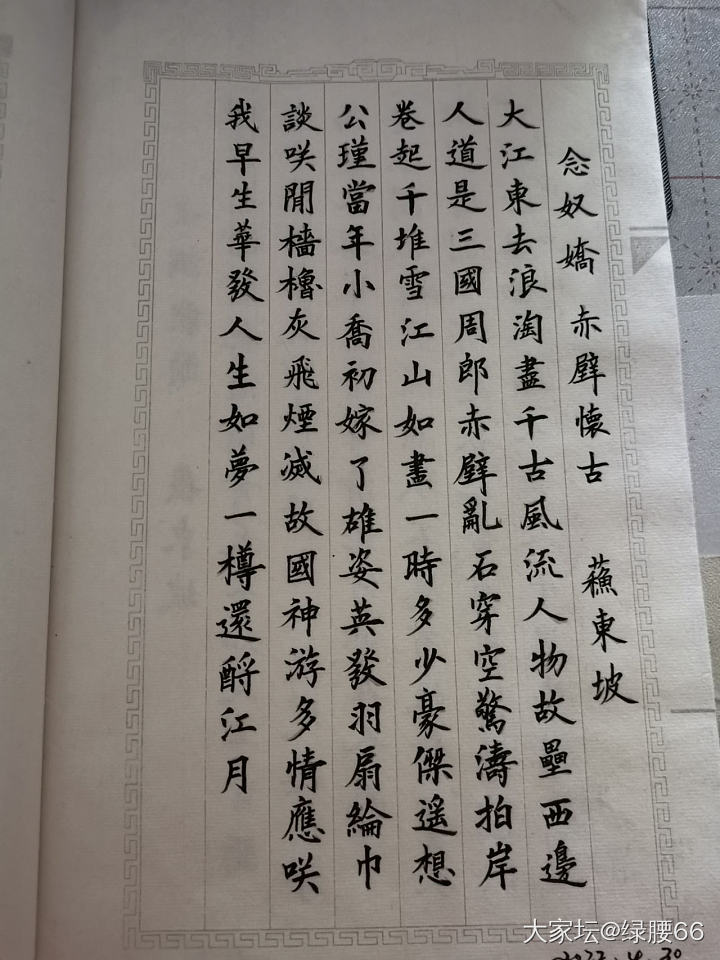 念奴嬌 赤壁懷古 蘓東坡
大江東去浪淘盡千古風流人物故壘西邊
人道是三國周郎赤壁亂石穿空驚濤拍岸
卷起千堆雪江山如畫一時多少豪傑遥想
公瑾當年小喬初嫁了雄姿英發羽扇綸巾
談咲閒檣櫓灰飛煙滅故國神游多情應咲
我早生華發人生如夢一樽還酹江月
大家坛@绿腰66